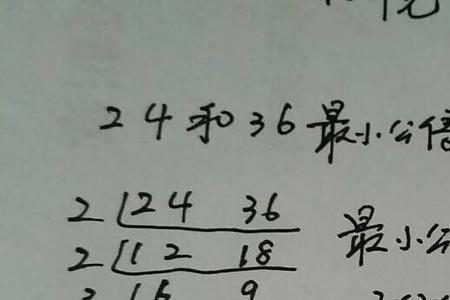 24和36最小公倍
2 24 36 最小公
2 12 18
6 9